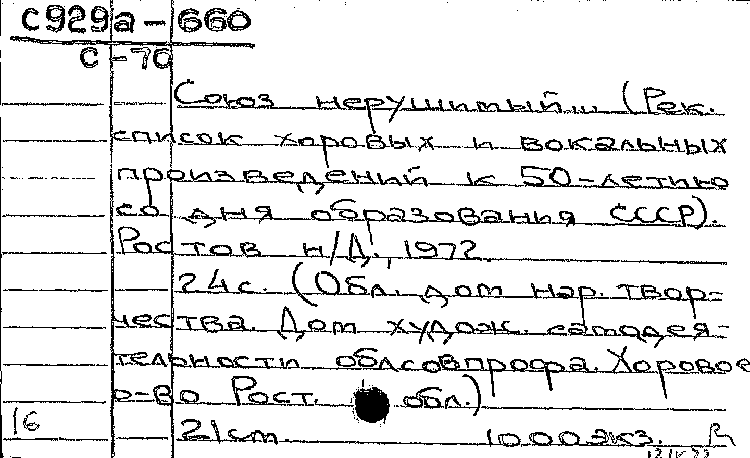 С929а-660
С-70
Союз нерушимый... (Рек.
список хоровых и вокальных
произведений к 50-летию
со дня образования СССР).
Ростов н/Д., 1972.
24с. (Обл. дом нар. твор=
чества. Дом худож. самодея-
тельности облсовпрофа. Хоровое
о-во Рост. обл.)
16
21см. 1000экз.